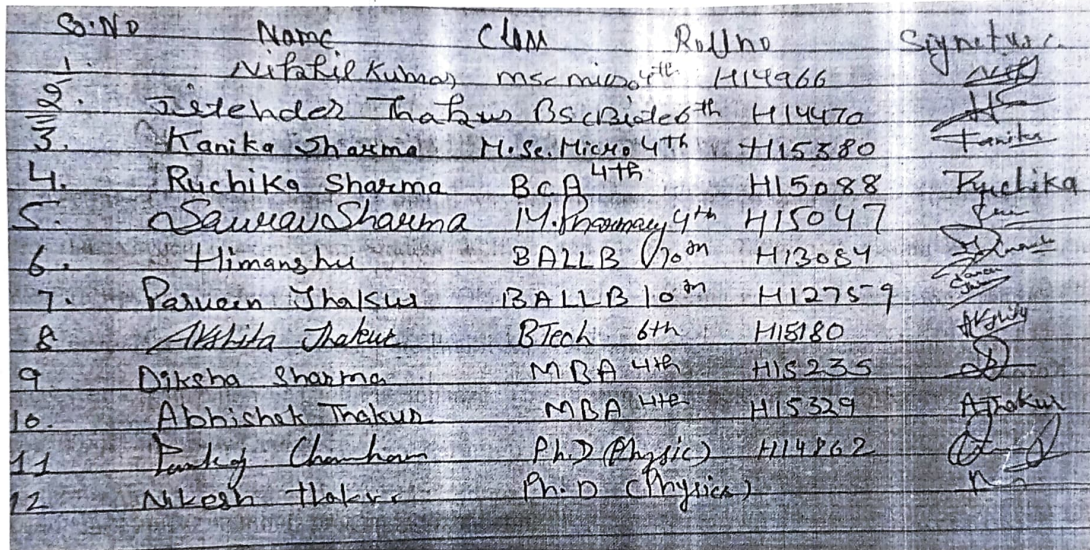 Sr.No Name Class Rollno Signeture
1. Nitakil Kumar msc micro 4th H14966
2. Jitender Thakur BScBiote6th H14470
3. Kanika Sharma M.Sc.Micro 4th H15380 Kanika
4. Ruchika Sharma BCA 4th H15088 Ruchika
5. Saurav Sharma M.Pharmacy 4th H15047
6. Himanshu BALLB 10th H13084
7. Parveen Thakur BALLB 10th H12759
8 Akhita Thakur BTech 6th H15180
9 Diksha Sharma MBA 4th H15235
10. Abhishek Thakur MBA 4th H15329 AThakur
11 Pankaj Chauhan Ph.D (Physic) H14862
12 Nikesh Ph.D (Physics)